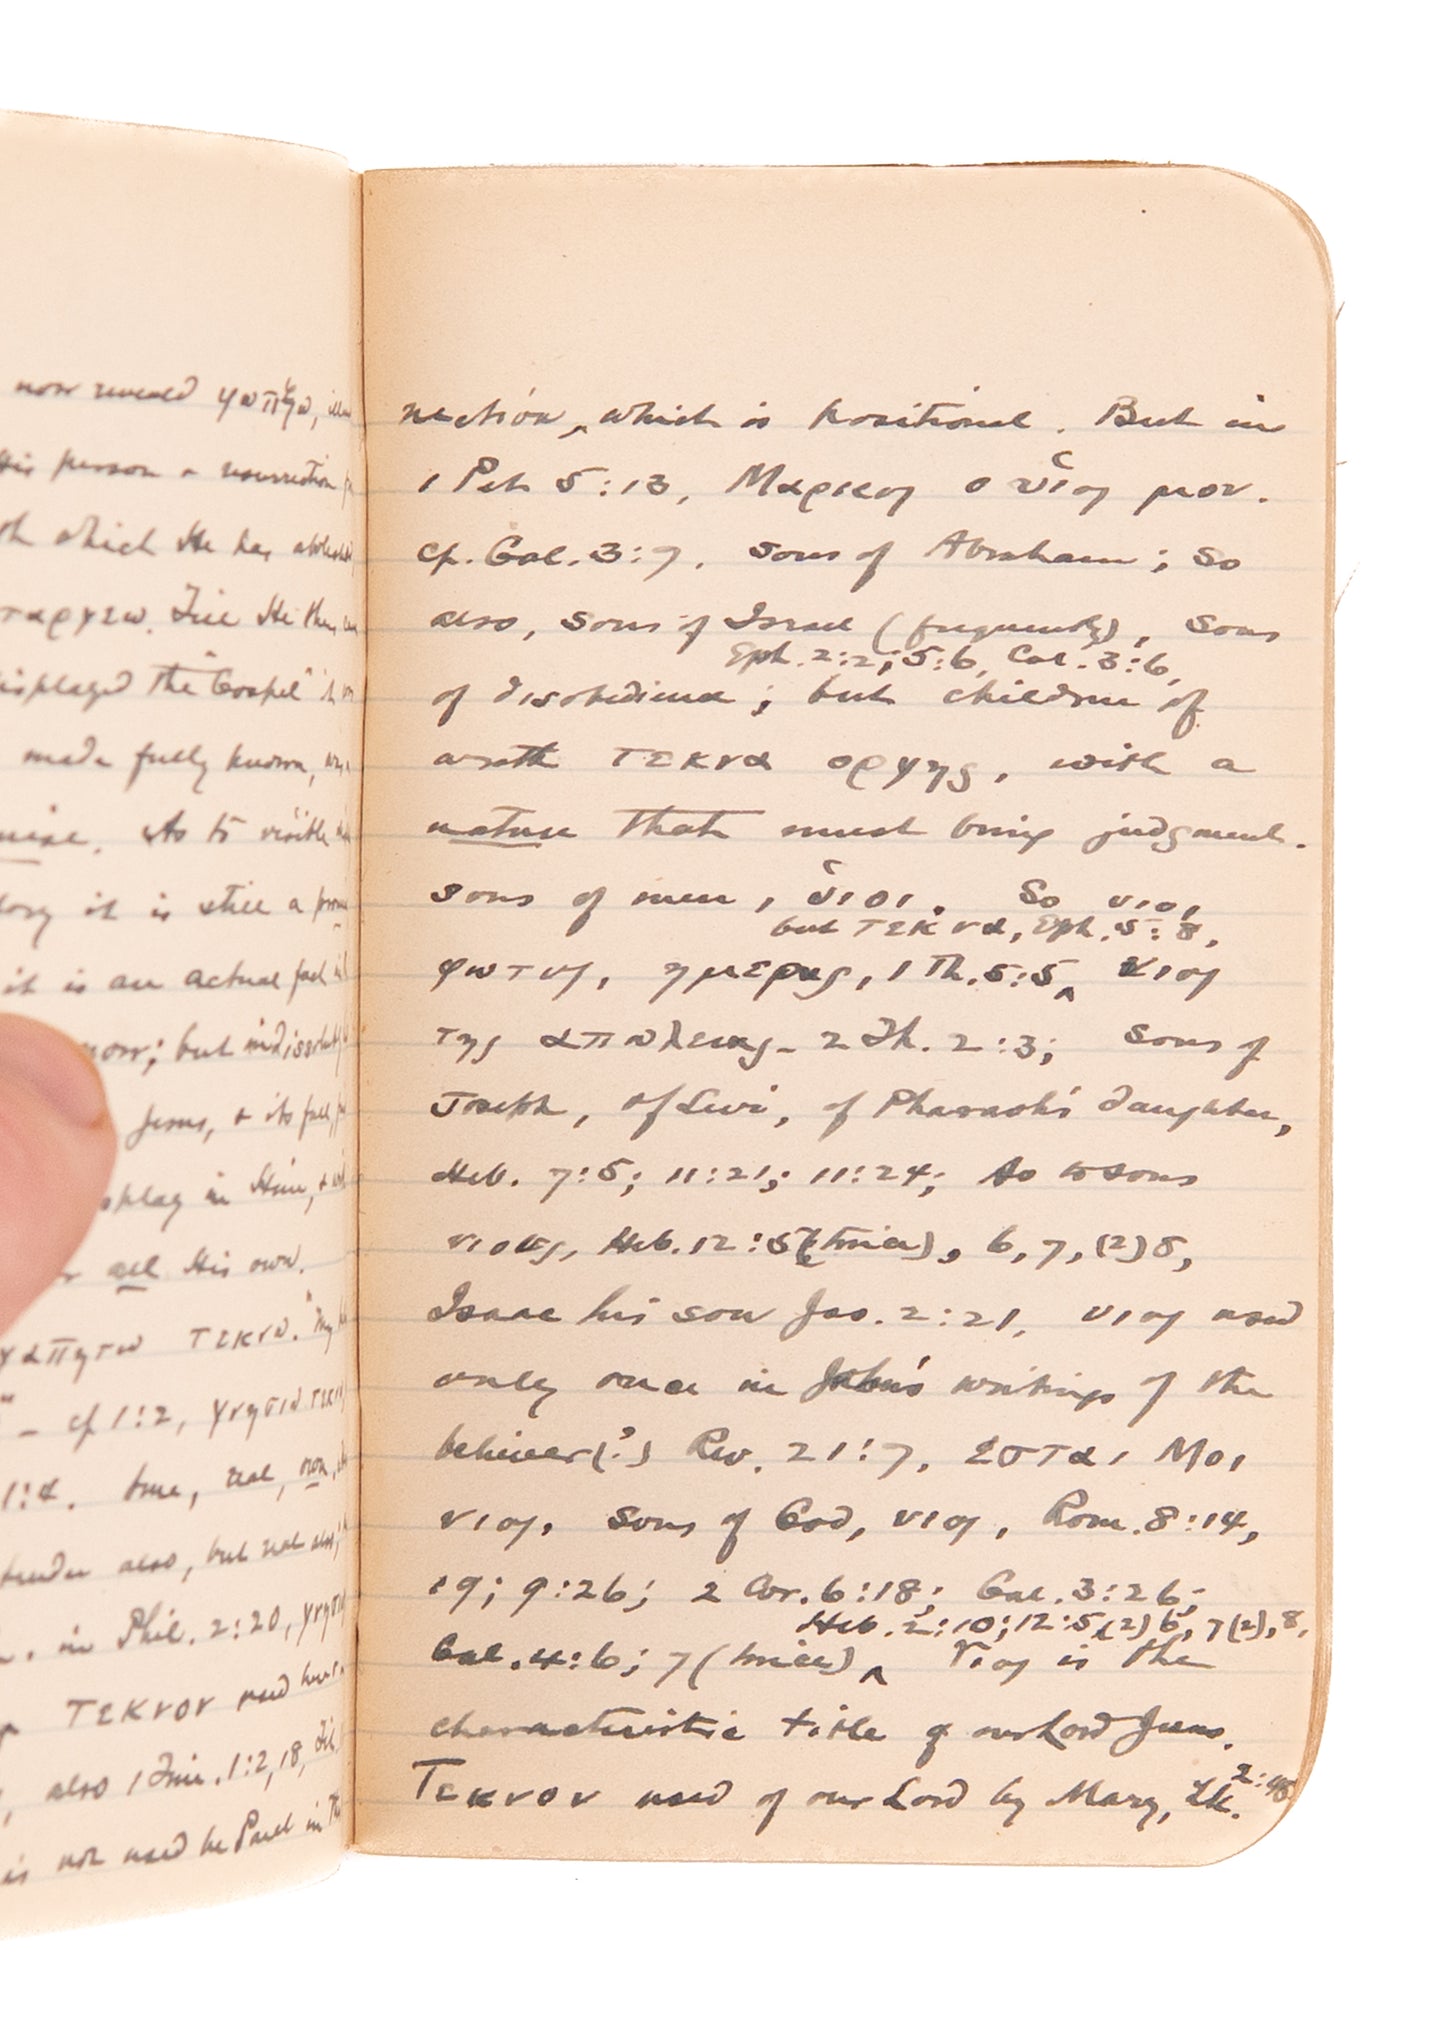 now revealed φωτιζω,
His person & resurrection
which He has abolished
ταργεω. Till He then
displayed the "Gospel" it
made fully known,
. As to visible
it is still a
it is an actual fact
now; but indissolubly
Jesus, & its full,
display in Him, &
all His own.
γαπητω τεκνω. "My
" - cf 1:2, γνησιω τεκν
1:4. true, real, own,
tender also, but real also,
in Phil. 2:20, γνησι
τεκνον used
, also 1 Tim. 1:2, 18,
is not used by Paul in
nection, which is positional. But in
1 Pet 5:13, Μαρκος ο υἱος μου.
cp. Gal. 3:7, sons of Abraham; so
also, sons of Israel (frequently), sons
Eph. 2:2; 5:6, Col. 3:6,
of disobedience; but children of
wrath τεκνα οργης, with a
nature that must bring judgment.
sons of men, υἱοι. So υιοι
but τεκνα, Eph. 5:8,
φωτος, ημερας, 1 Th. 5:5 υιος
της απωλειας - 2 Th. 2:3; sons of
Joseph, of Levi, of Pharaoh's daughter,
Heb. 7:5; 11:21; 11:24; As to sons
υιους, Heb. 12:5 (twice), 6, 7, (2) 8,
Isaac his son Jas. 2:21, υιος used
only once in John's writings of the
believer (?) Rev. 21:7, εσται Μοι
υιος. Sons of God, υιος, Rom. 8:14,
19; 9:26; 2 Cor. 6:18; Gal. 3:26;
Heb. 2:10; 12:5, (2) 6, 7 (2), 8,
Gal. 4:6; 7 (twice) Υιος is the
characteristic title of our Lord Jesus.
Τεκνον used of our Lord by Mary, Lk. 2:48